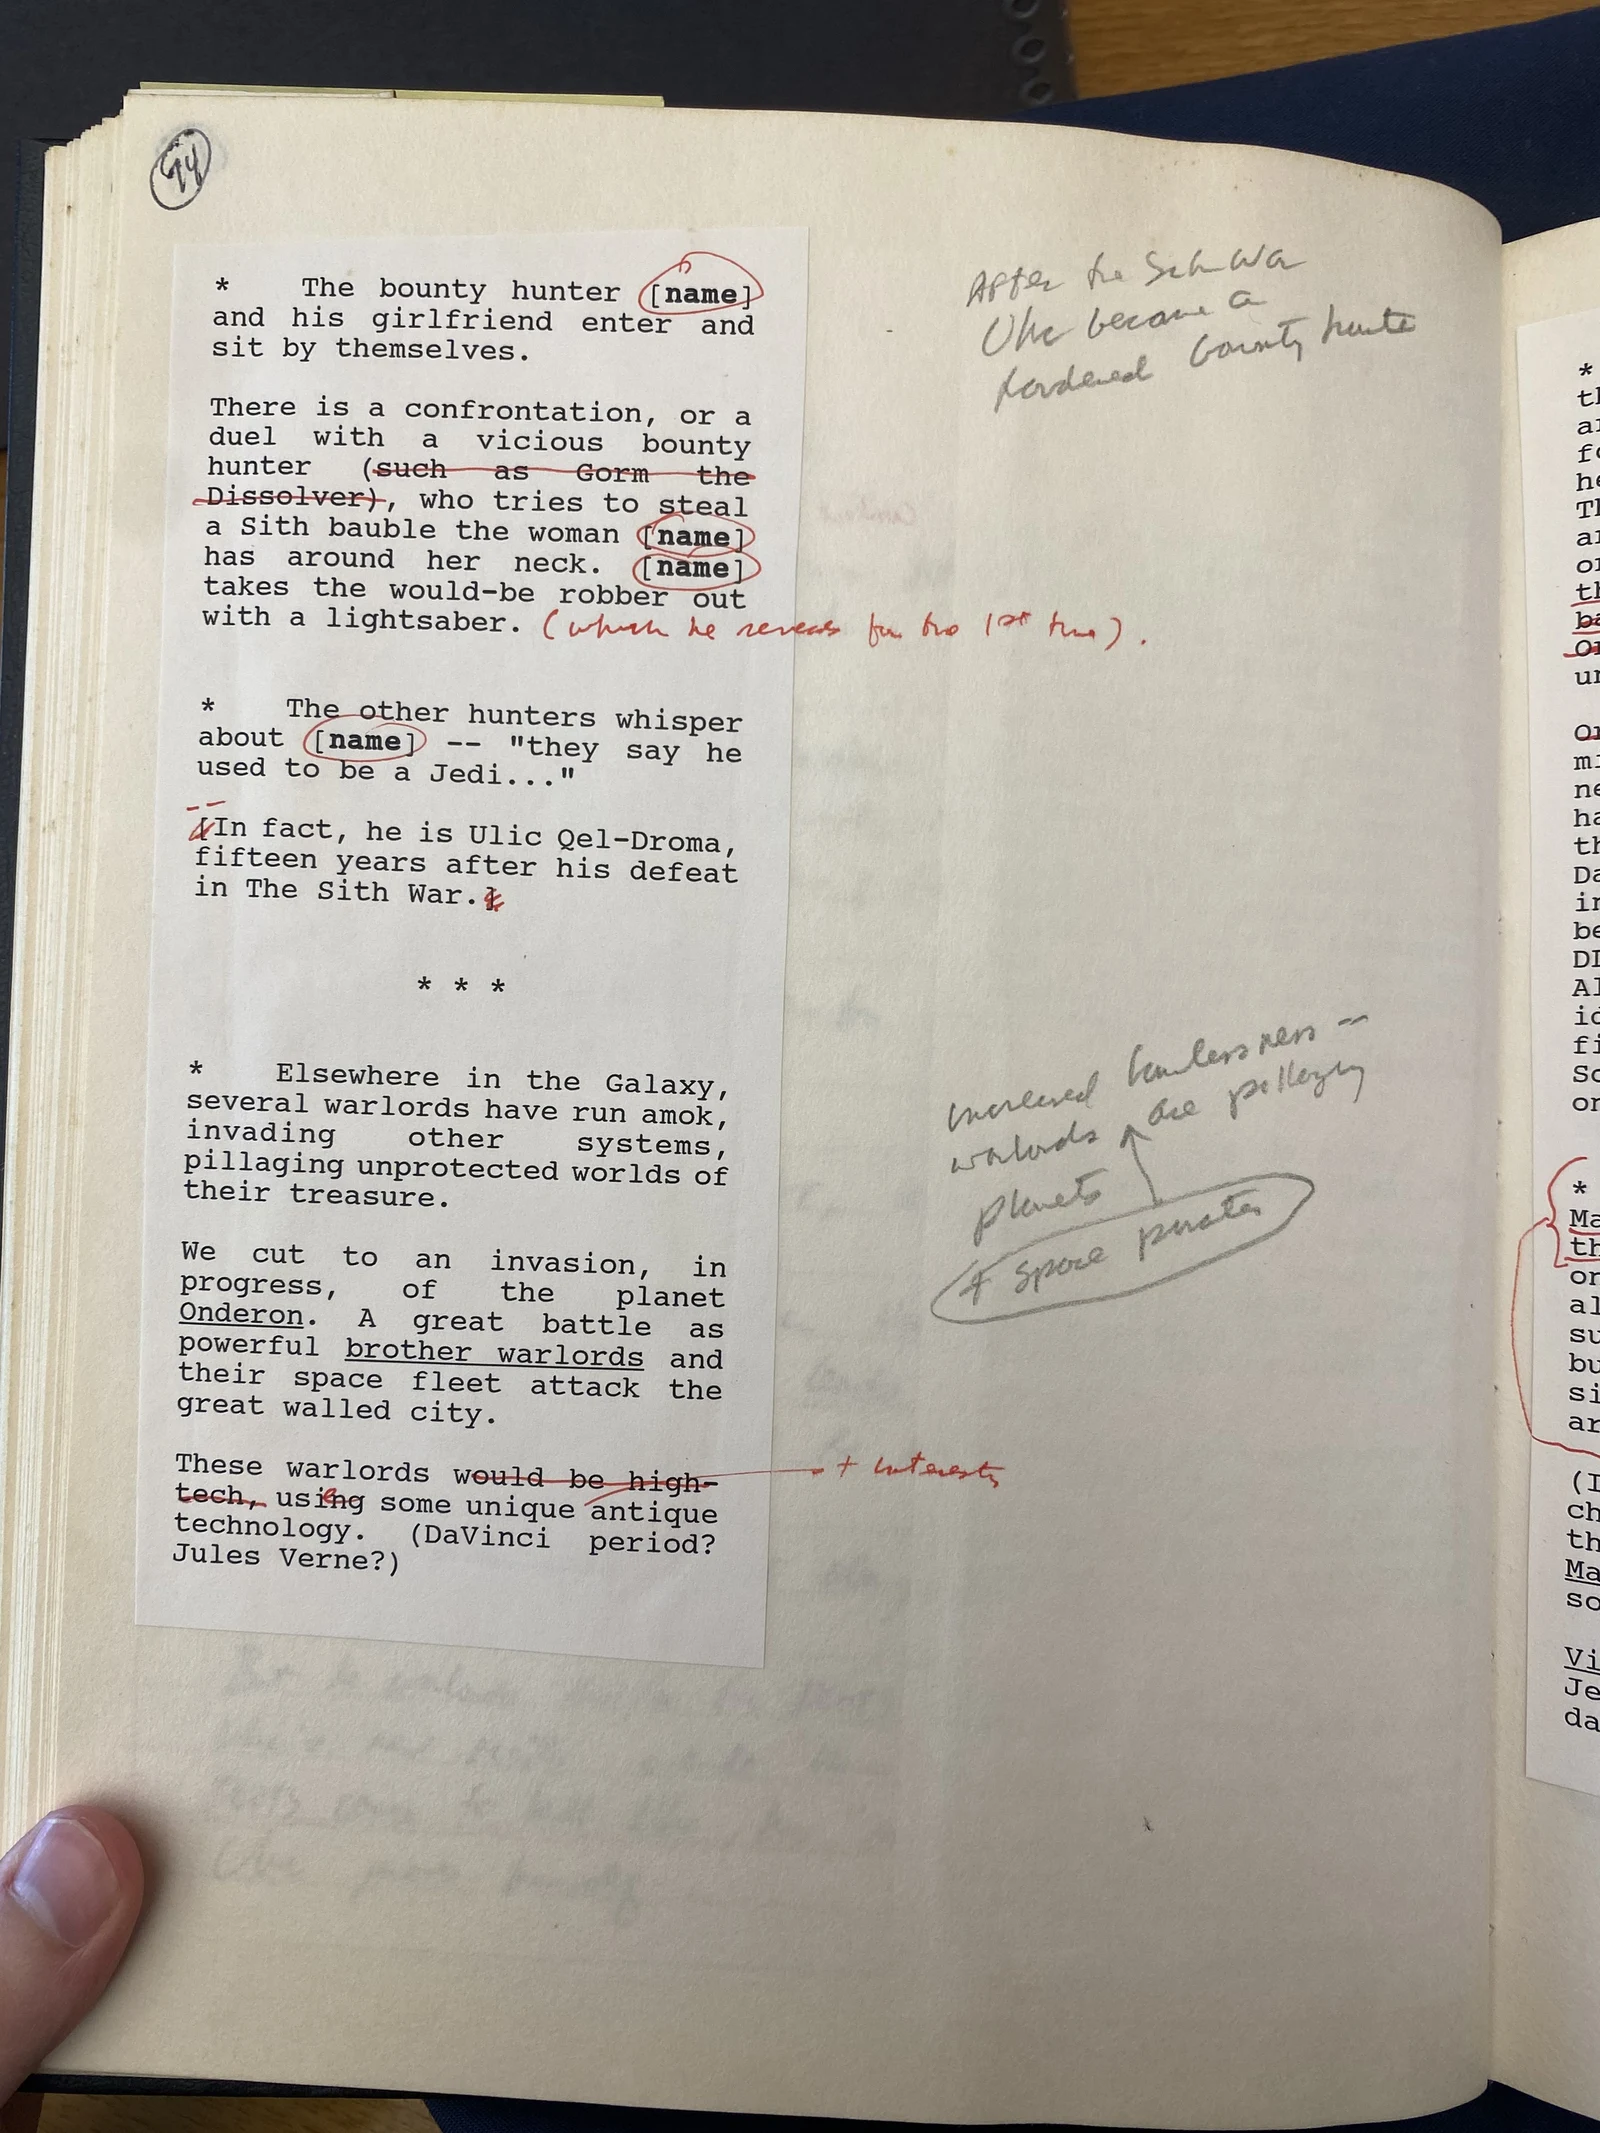 94
* The bounty hunter [name]
and his girlfriend enter and
sit by themselves.
There is a confrontation, or a
duel with a vicious bounty
hunter (such as Gorm the
Dissolver), who tries to steal
a Sith bauble the woman [name]
has around her neck. [name]
takes the would-be robber out
with a lightsaber. (which he reveals for the 1st time).
* The other hunters whisper
about [name] -- "they say he
used to be a Jedi..."
[In fact, he is Ulic Qel-Droma,
fifteen years after his defeat
in The Sith War.]
* * *
* Elsewhere in the Galaxy,
several warlords have run amok,
invading other systems,
pillaging unprotected worlds of
their treasure.
We cut to an invasion, in
progress, of the planet
Onderon. A great battle as
powerful brother warlords and
their space fleet attack the
great walled city.
These warlords would be high-
tech, using some unique antique
technology. (DaVinci period?
Jules Verne?)
After the Sith War
Ulic became a
hardened bounty hunter
increased lawlessness --
warlords are pillaging
planets
+ space pirates
*
th
ar
fo
he
Th
ar
or
th
ba
or
un
On
mi
ne
ha
th
Da
in
be
DI
Al
id
fi
So
on
*
Ma
th
on
al
su
bu
si
ar
(I
ch
th
Ma
so
Vi
Je
da